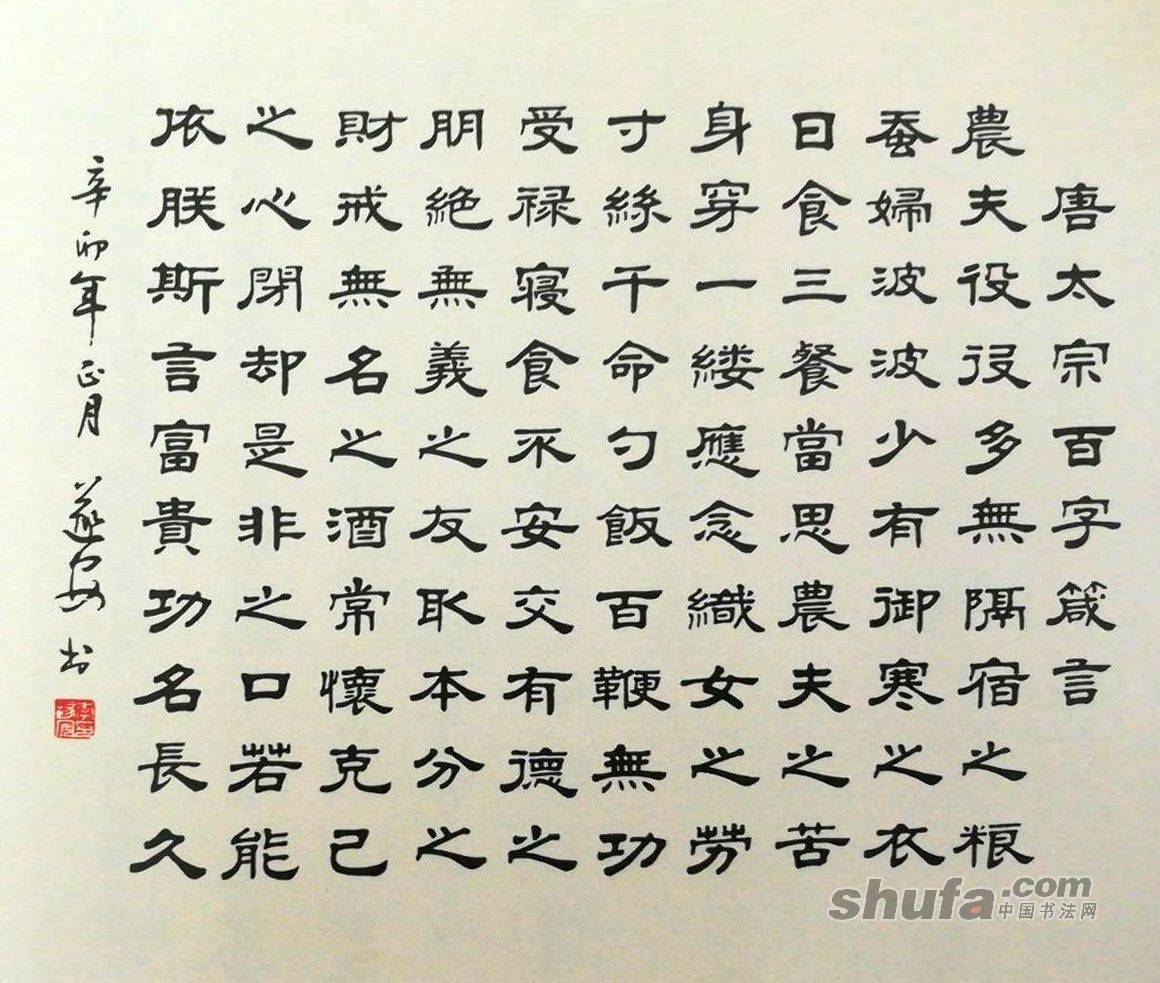 唐太宗百字箴言
農夫役役多無隔宿之粮
蚕婦波波少有御寒之衣
日食三餐當思農夫之苦
身穿一縷應念織女之劳
寸絲千命勺飯百鞭無功
受禄寢食不安交有德之
朋絶無義之友取本分之
財戒無名之酒常懷克己
之心閉却是非之口若能
依朕斯言富貴功名長久
辛卯年正月 书
shufa.com
中国书法网